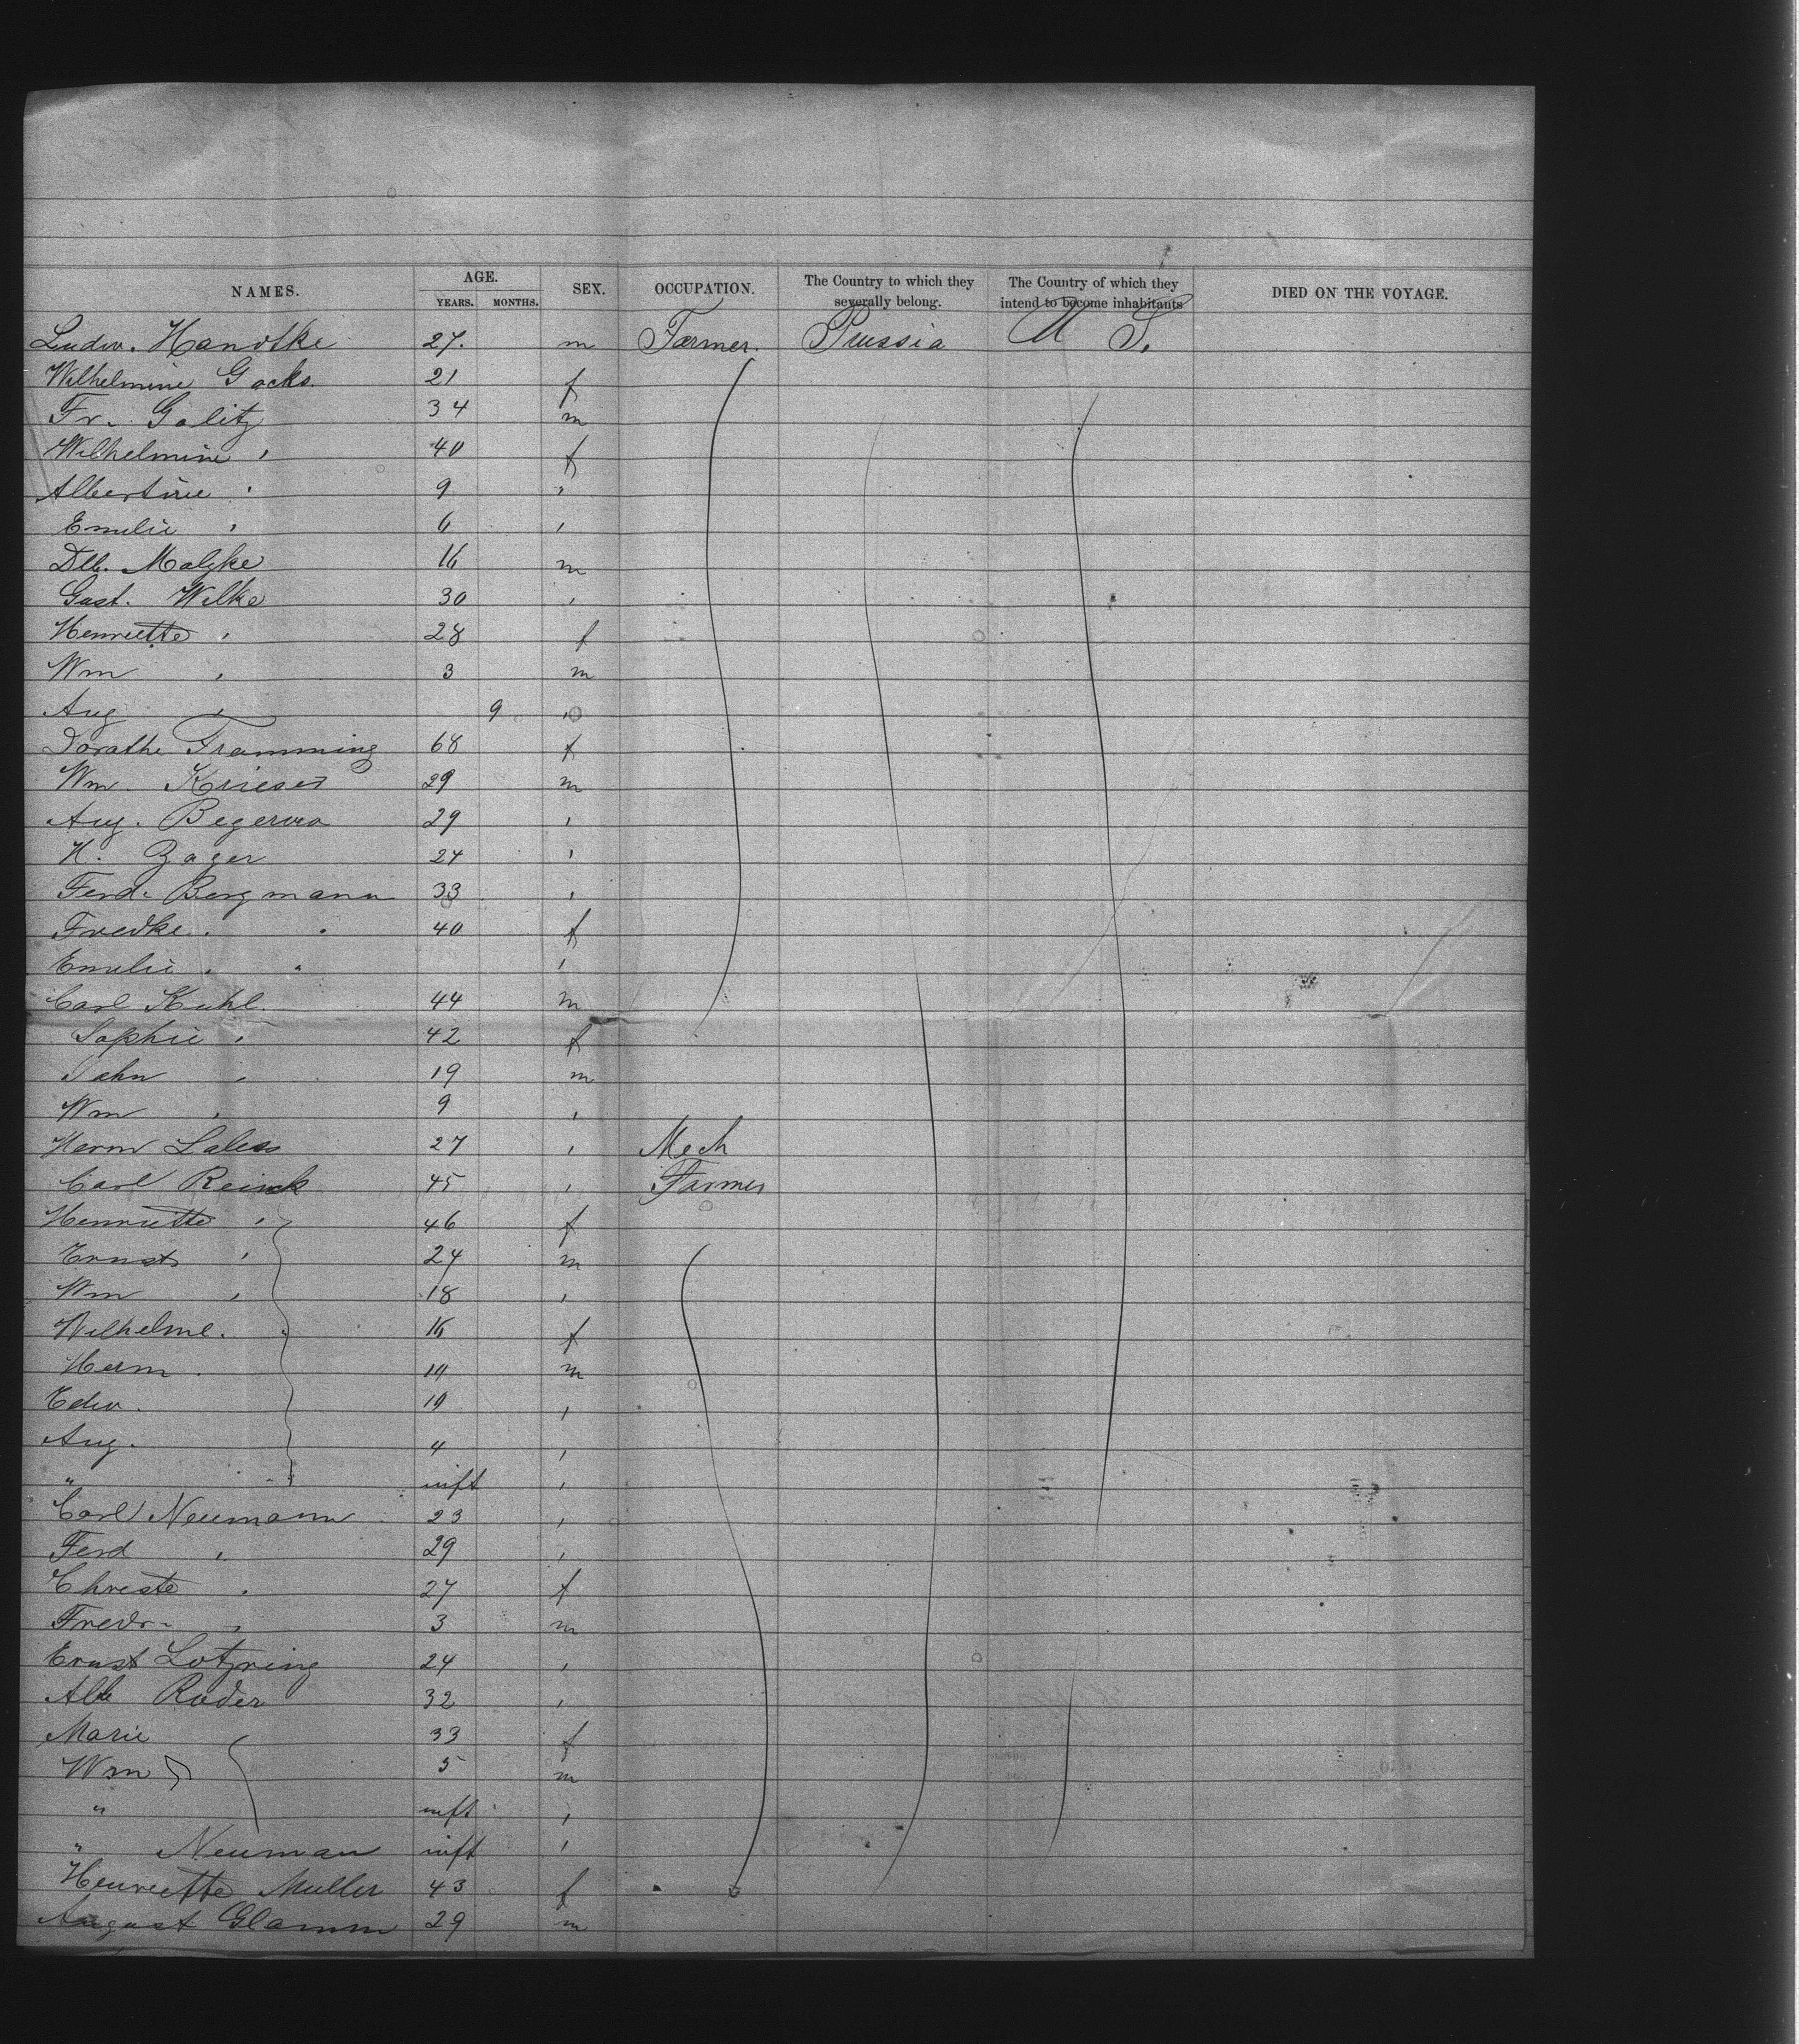 NAMES. AGE. YEARS. MONTHS. SEX. OCCUPATION. The Country to which they severally belong. The Country of which they intend to become inhabitants DIED ON THE VOYAGE.
Ludw. Handtke 27. m Farmer. Prussia U S.
Wilhelmine Gacks. 21 f
Fr. Golitz 34 m
Wilhelmine " 40 f
Albertine " 9 "
Emilie " 6 "
Malzke 16 m
Gust. Wilke 30 "
Henriette " 28 f
Wm " 3 m
Aug " 9 "
Dorathe Framming 68 f
Wm. Krieser 29 m
Aug. Begerow 29 "
H. Zager 24 "
Ferd. Bergmann 33 "
Fredke. " 40 f
Emilie. " "
Carl Kuhl. 44 m
Sophie " 42 f
John " 19 m
Wm " 9 "
Herm 27 " Mech
Carl Reinck 45 " Farmer
Henriette " 46 f
Ernst " 24 m
Wm " 18 "
Wilhelme. " 16 f
Herm. m
Edw. "
Aug. 4 "
" inft "
Carl Neumann 23 "
Ferd " 29 "
Christe " 27 f
Fredr. " 3 m
Ernst Lotzring 24 "
Alb Rader 32 "
Marie 33 f
Wm 5 m
" inft "
" Neuman inft "
Henriette Muller 43 f
August Glamm 29 m